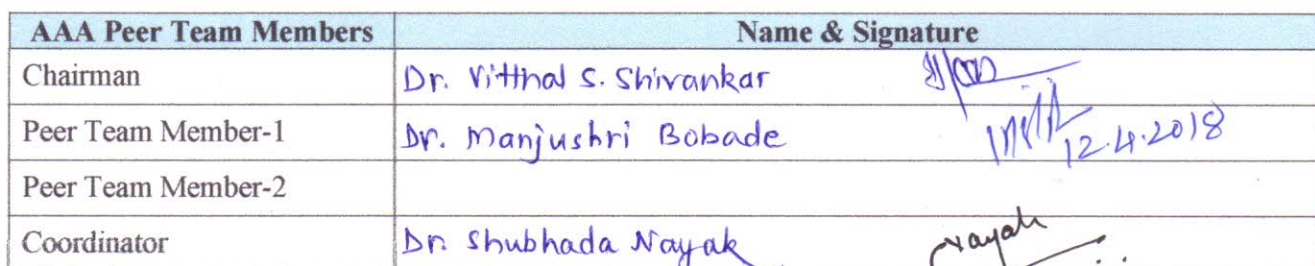 AAA Peer Team Members Name & Signature
Chairman Dr. Vitthal S. Shivankar
Peer Team Member-1 Dr. Manjushri Bobade 12.4.2018
Peer Team Member-2
Coordinator Dr. Shubhada Nayak Nayak